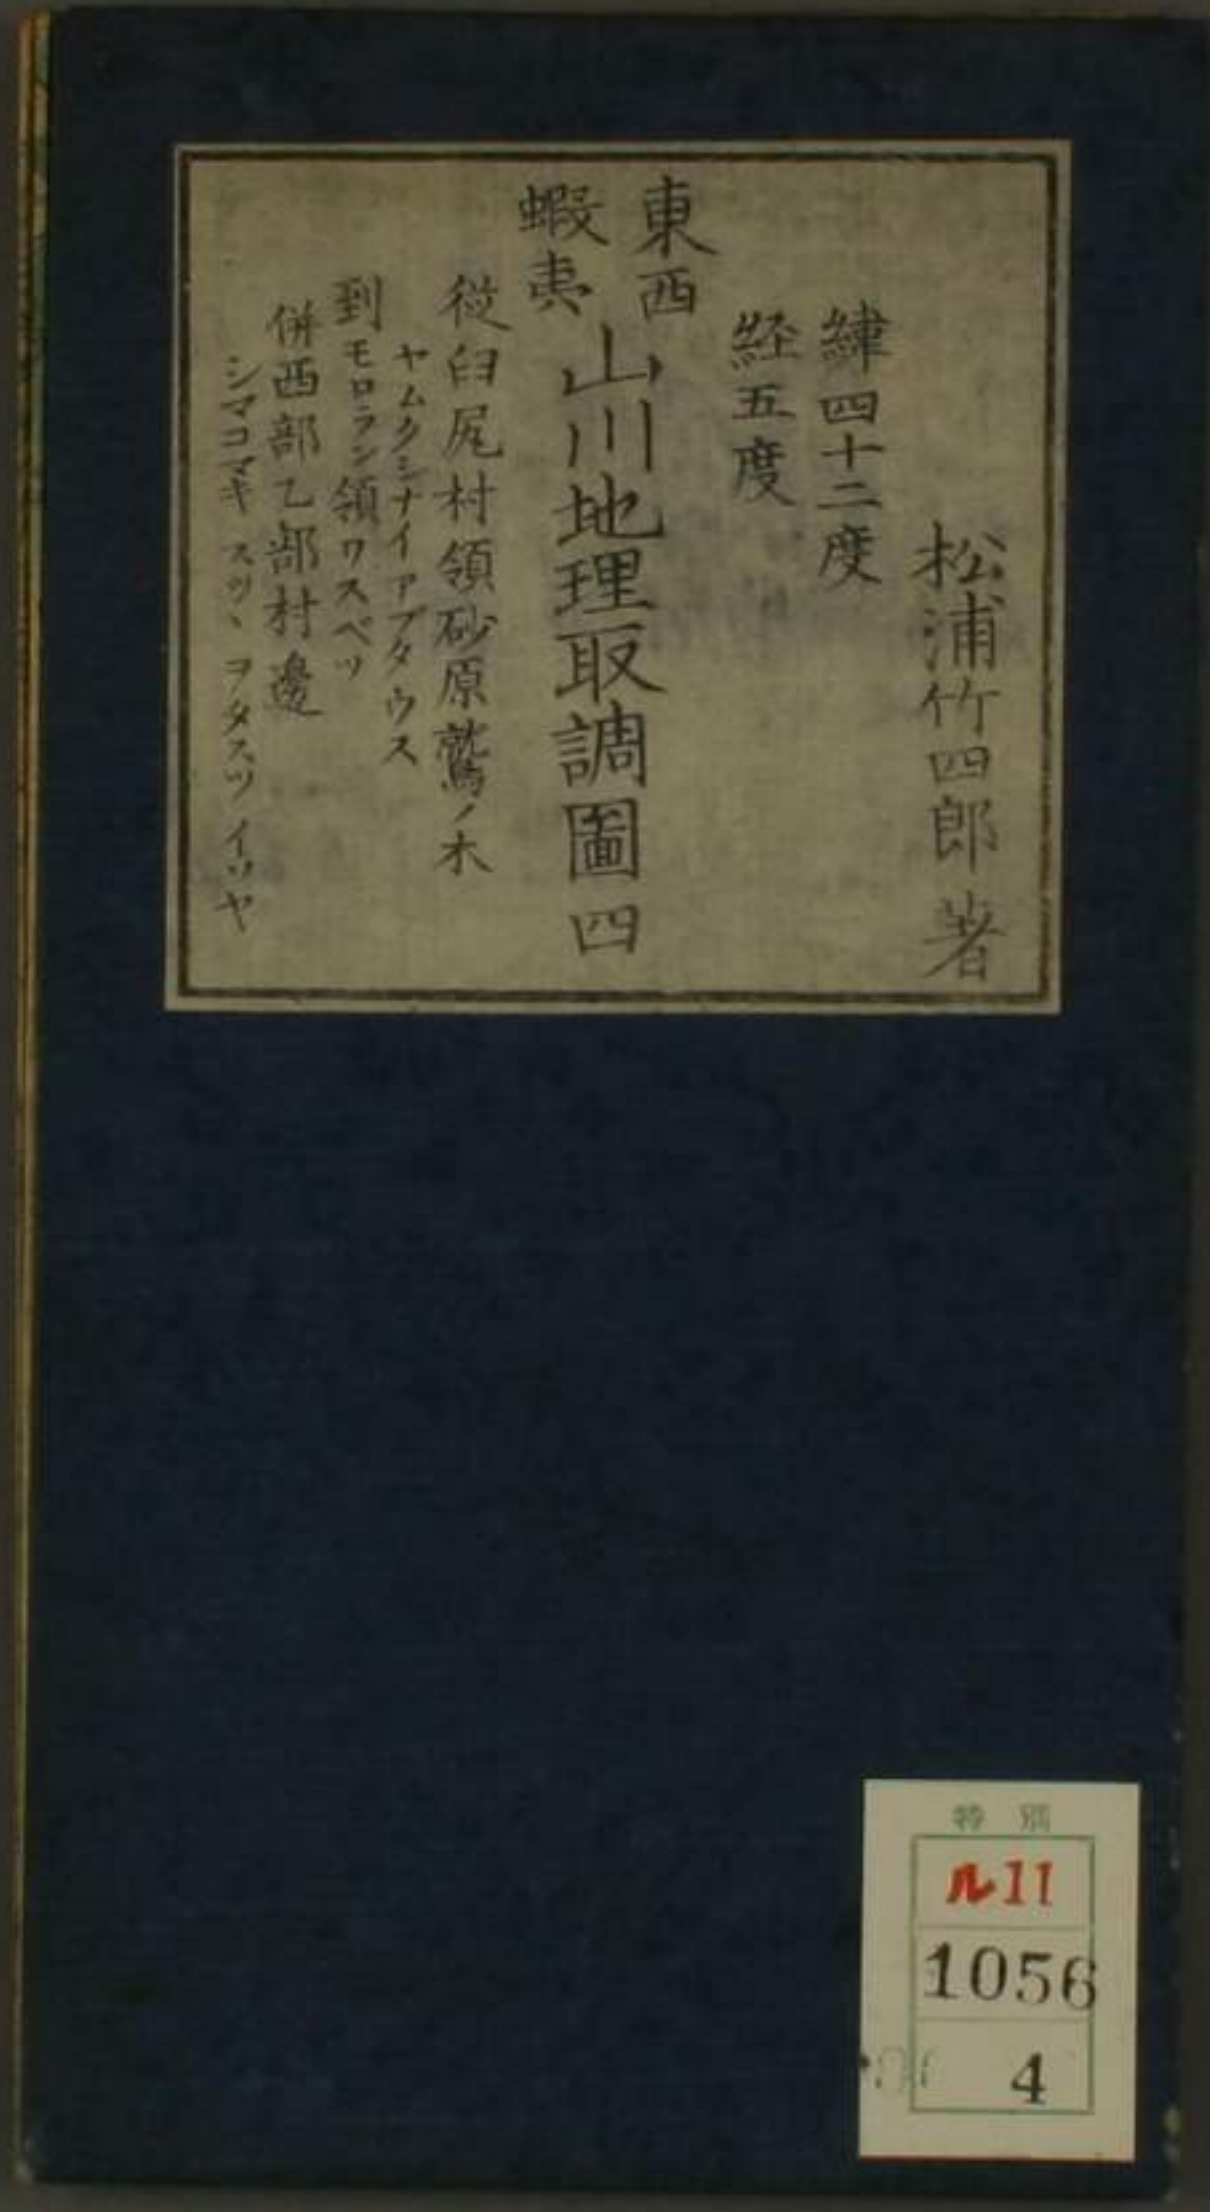 松浦竹四郎著
緯四十二度
経五度
東西
蝦夷
山川地理取調圖四
従臼尻村領砂原鷲ノ木
ヤムクシナイアブタウス
到モロラン領ワスベツ
併西部乙部村邊
シマコマキ スツヽ ヲタスツ イソヤ
特別
ル11
1056
4